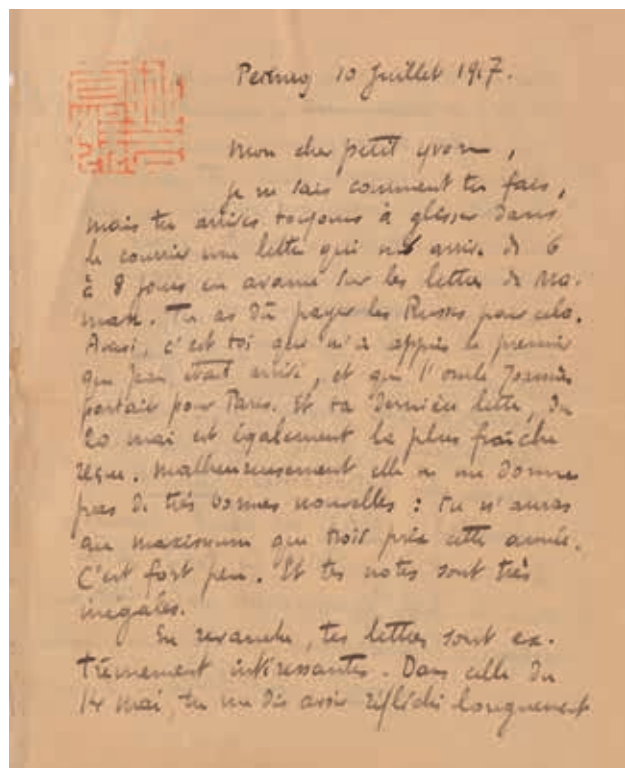 10 Juillet 1917.
Mon cher petit Yvon,
je ne sais comment tu fais,
mais tu arrives toujours à glisser dans
le courrier une lettre qui arrive de 6
à 8 jours en avance sur les lettres de Ma-
man. Tu as dû payer les Russes pour cela.
Aussi, c'est toi qui m'a appris le premier
que Jean était arrivé, et que l'oncle
partait pour Paris. Et ta dernière lettre, du
20 mai est également la plus fraîche
reçue. Malheureusement elle ne me donne
pas de très bonnes nouvelles : tu n'auras
au maximum que trois prix cette année.
C'est fort peu. Et tes notes sont très
inégales.
En revanche, tes lettres sont ex-
trêmement intéressantes. Dans celle du
14 mai, tu me dis avoir réfléchi longuement